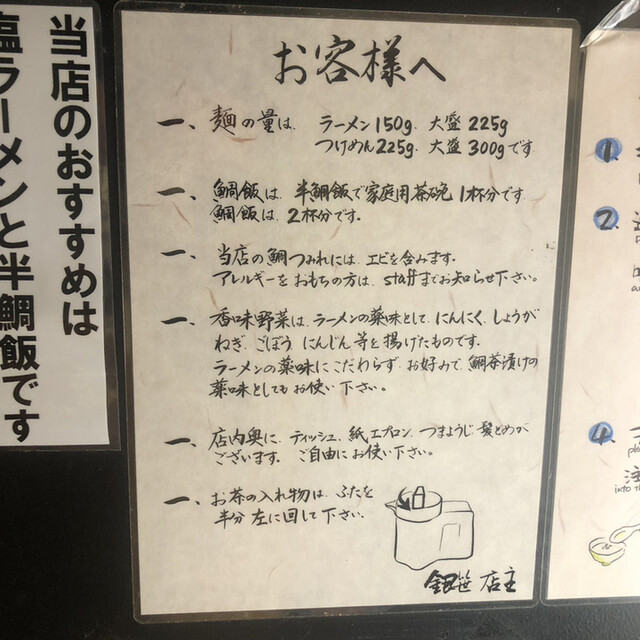 当店のおすすめは
塩ラーメンと半鯛飯です
お客様へ
一、麺の量は、ラーメン150g、大盛225g
つけめん225g、大盛300gです
一、鯛飯は、半鯛飯で家庭用茶碗1杯分です
鯛飯は、2杯分です。
一、当店の鯛つみれには、エビを含みます。
アレルギーをおもちの方は、staffまでお知らせ下さい。
一、香味野菜は、ラーメンの薬味として、にんにく、しょうが
ねぎ、ごぼう、にんじん等を揚げたものです。
ラーメンの薬味にこだわらず、お好みで、鯛茶漬けの
薬味としてもお使い下さい。
一、店内奥に、ティッシュ、紙エプロン、つまようじ、髪とめが
ございます。ご自由にお使い下さい。
一、お茶の入れ物は、ふたを
半分左に回して下さい。
銀笹 店主
1.
2.
4.
注
into th